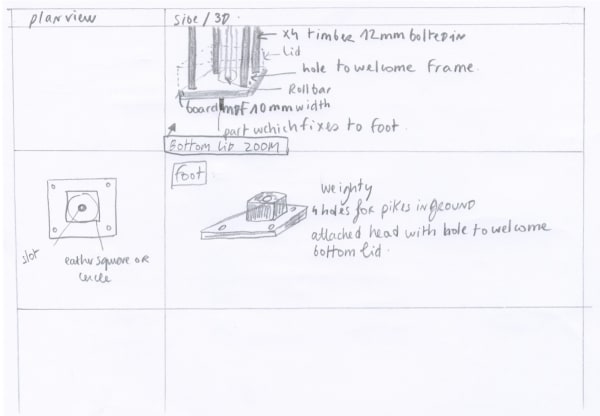 plan view
side / 3D.
x4 timber 12mm bolted in
Lid
hole to welcome frame.
Roll bar
board mdf 10mm width
part which fixes to foot.
Bottom Lid ZOOM
foot
weighty
4 holes for pikes in ground
attached head with hole to welcome
bottom lid.
slot
eather square or
circle